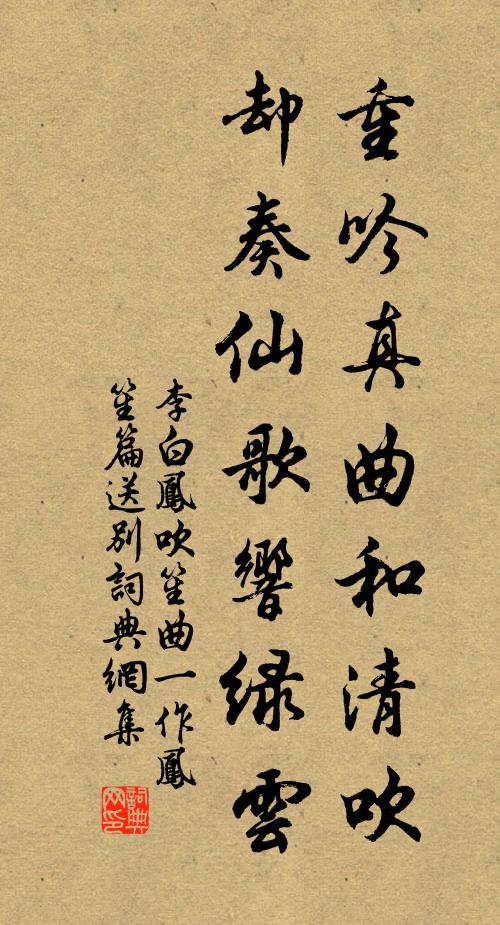 重吟真曲和清吹
却奏仙歌響緑雲
李白鳳吹笙曲一作鳳
笙篇送别詞典網集
詞典
网印